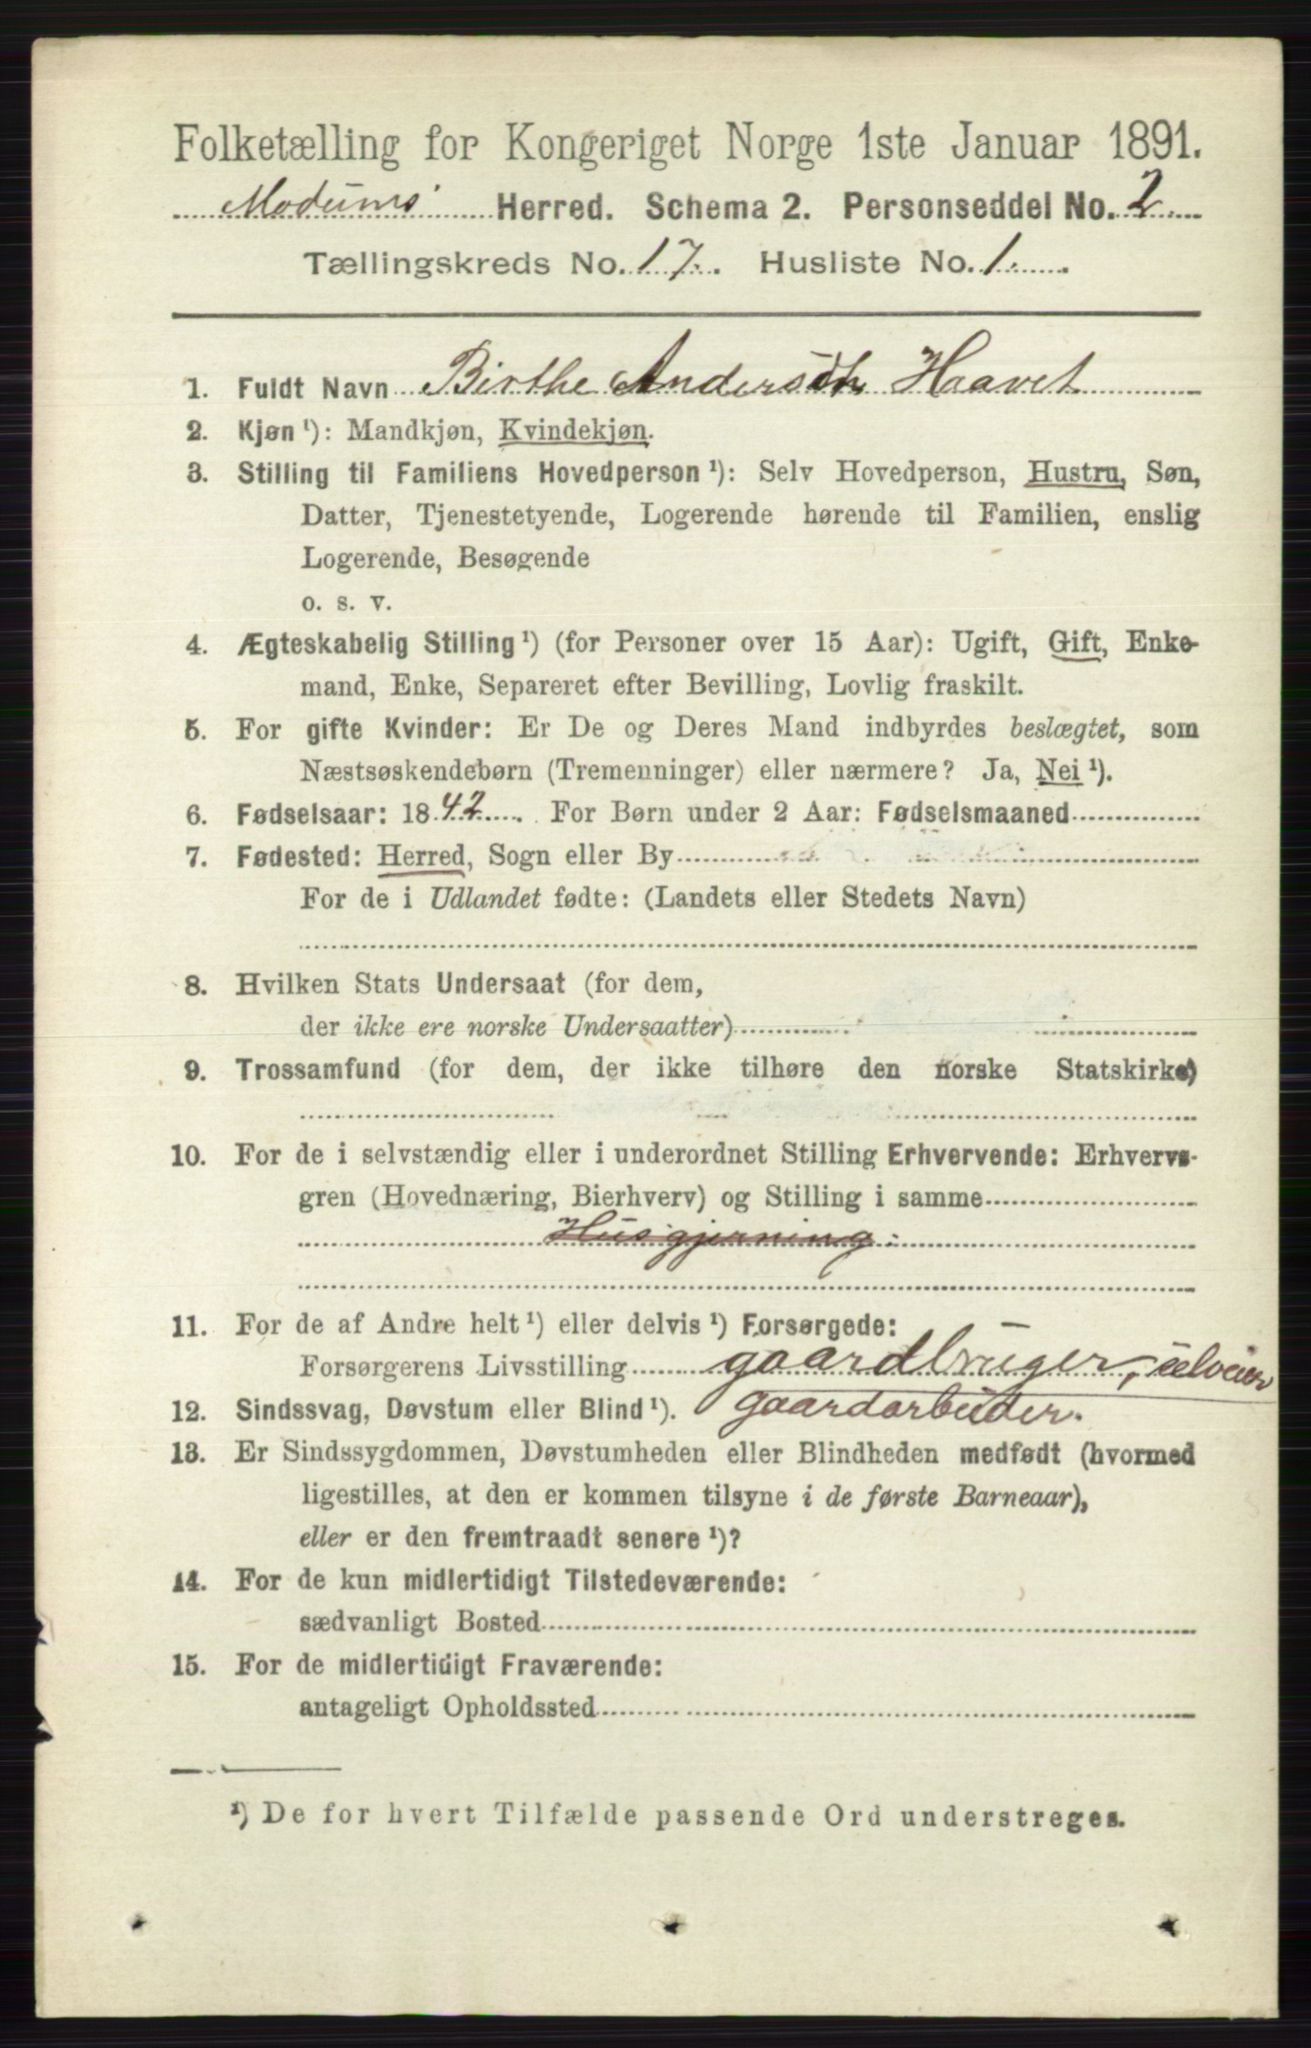 Folketælling for Kongeriget Norge 1ste Januar 1891.
Modums Herred. Schema 2. Personseddel No. 2.
Tællingskreds No. 17. Husliste No. 1.
1. Fuldt Navn Birthe Haavet
2. Kjøn ¹): Mandkjøn, Kvindekjøn.
3. Stilling til Familiens Hovedperson ¹): Selv Hovedperson, Hustru, Søn,
Datter, Tjenestetyende, Logerende hørende til Familien, enslig
Logerende, Besøgende
o. s. v.
4. Ægteskabelig Stilling ¹) (for Personer over 15 Aar): Ugift, Gift, Enke-
mand, Enke, Separeret efter Bevilling, Lovlig fraskilt.
5. For gifte Kvinder: Er De og Deres Mand indbyrdes beslægtet, som
Næstsøskendebørn (Tremenninger) eller nærmere? Ja, Nei ¹).
6. Fødselsaar: 1842. For Børn under 2 Aar: Fødselsmaaned
7. Fødested: Herred, Sogn eller By
For de i Udlandet fødte: (Landets eller Stedets Navn)
8. Hvilken Stats Undersaat (for dem,
der ikke ere norske Undersaatter)
9. Trossamfund (for dem, der ikke tilhøre den norske Statskirke)
10. For de i selvstændig eller i underordnet Stilling Erhvervende: Erhvervs-
gren (Hovednæring, Bierhverv) og Stilling i samme
Husgjerning.
11. For de af Andre helt ¹) eller delvis ¹) Forsørgede:
Forsørgerens Livsstilling gaardbruger, selveier
12. Sindssvag, Døvstum eller Blind ¹). gaardarbeider.
13. Er Sindssygdommen, Døvstumheden eller Blindheden medfødt (hvormed
ligestilles, at den er kommen tilsyne i de første Barneaar),
eller er den fremtraadt senere ¹)?
14. For de kun midlertidigt Tilstedeværende:
sædvanligt Bosted
15. For de midlertidigt Fraværende:
antageligt Opholdssted
¹) De for hvert Tilfælde passende Ord understreges.